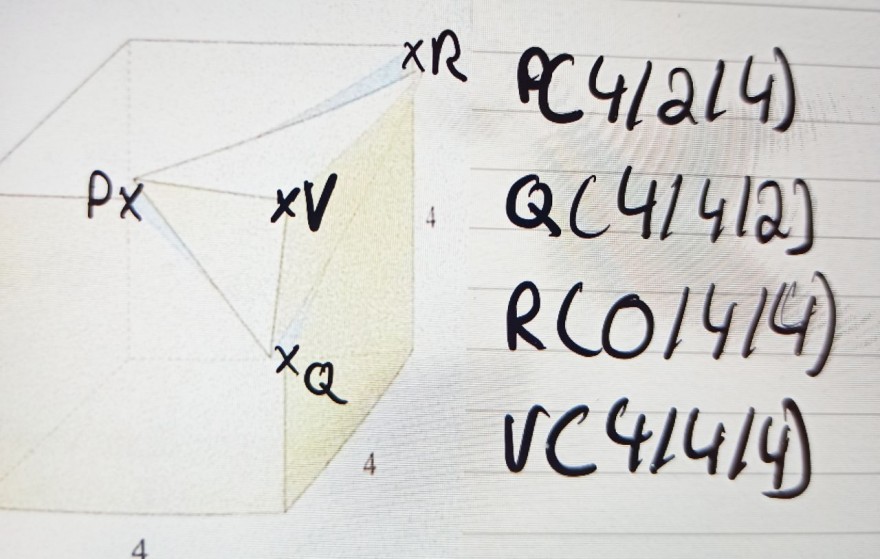 xR
P(4/2/4)
Px
xV
4
Q(4/4/2)
R(0/4/4)
xQ
V(4/4/4)
4
4